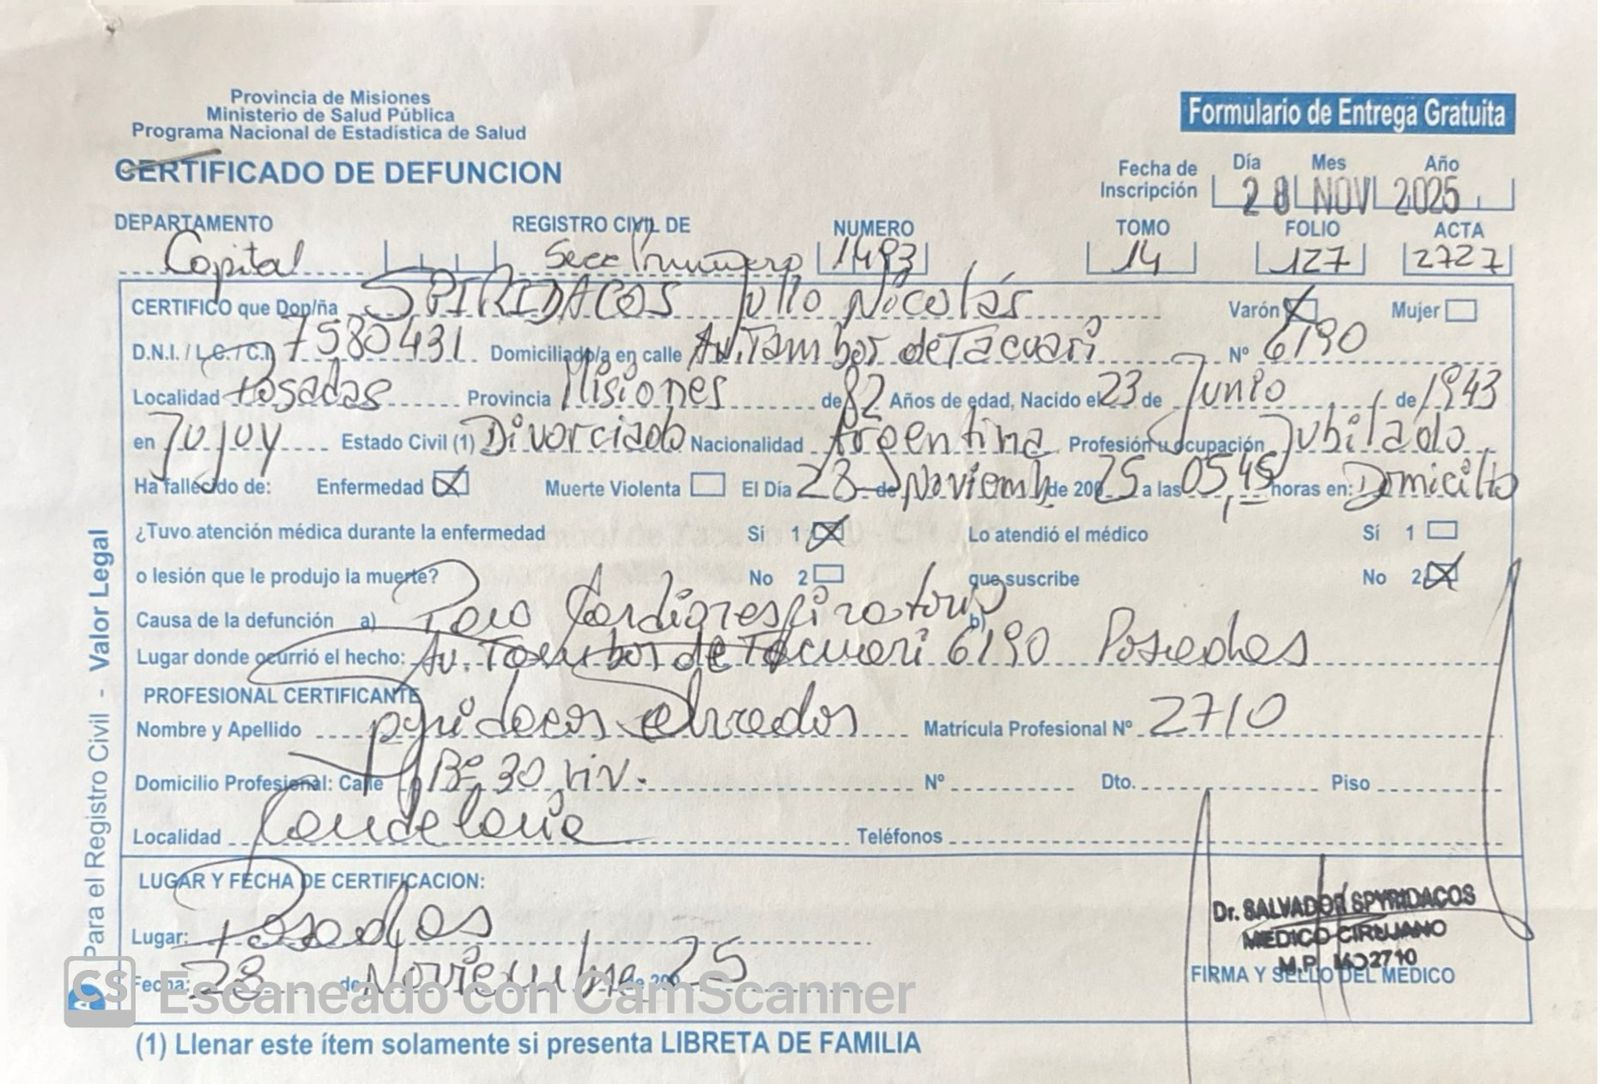 Provincia de Misiones
Ministerio de Salud Pública
Programa Nacional de Estadística de Salud
Formulario de Entrega Gratuita
CERTIFICADO DE DEFUNCION
Fecha de Inscripción Día Mes Año
28 NOV 2025
DEPARTAMENTO REGISTRO CIVIL DE NUMERO TOMO FOLIO ACTA
Capital Secc Primero 1493 14 127 2727
CERTIFICO que Don/ña SPIRIDACOS Julio Nicolás Varón X Mujer
D.N.I. / L.C. / C.I. 7580431 Domiciliado/a en calle Av. Tambor de Tacuari Nº 6190
Localidad Posadas Provincia Misiones de 82 Años de edad, Nacido el 23 de Junio de 1943
en Jujuy Estado Civil (1) Divorciado Nacionalidad Argentina Profesión u ocupación Jubilado
Ha fallecido de: Enfermedad X Muerte Violenta El Día 28 de Noviemb de 200 25 a las 05,45 horas en: Domicilio
¿Tuvo atención médica durante la enfermedad Sí 1 X Lo atendió el médico Sí 1
o lesión que le produjo la muerte? No 2 que suscribe No 2 X
Causa de la defunción a) Paro Cardiorespiratorio b)
Lugar donde ocurrió el hecho: Av. Tambor de Tacuari 6190 Posadas
PROFESIONAL CERTIFICANTE
Nombre y Apellido Spyridacos Matrícula Profesional Nº 2710
Domicilio Profesional: Calle Bº 30 viv. Nº Dto. Piso
Localidad Candelaria Teléfonos
LUGAR Y FECHA DE CERTIFICACION:
Lugar: Posadas
Fecha: 28 de Noviembre de 200 25
Dr. SALVADOR SPYRIDACOS
MEDICO CIRUJANO
M.P. Nº 02710
FIRMA Y SELLO DEL MEDICO
(1) Llenar este ítem solamente si presenta LIBRETA DE FAMILIA
Para el Registro Civil - Valor Legal
CS Escaneado con CamScanner